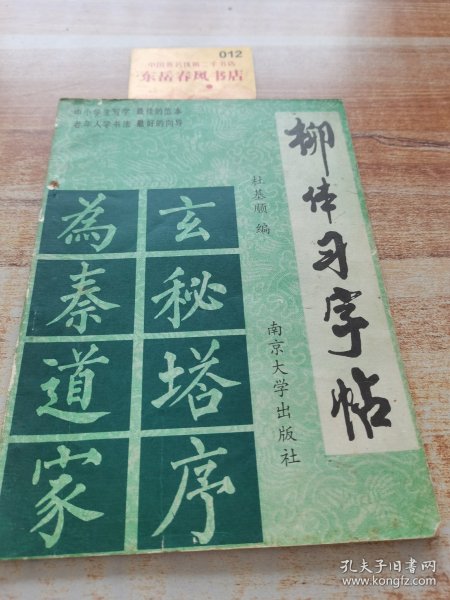 012
中国著名优质二手书店
东岳春风书店
中小学生写字 最佳的范本
老年人学书法 最好的向导
柳体习字帖
杜基顺 编
南京大学出版社
玄秘塔序
為秦道家
孔夫子旧书网
www.kongfz.com